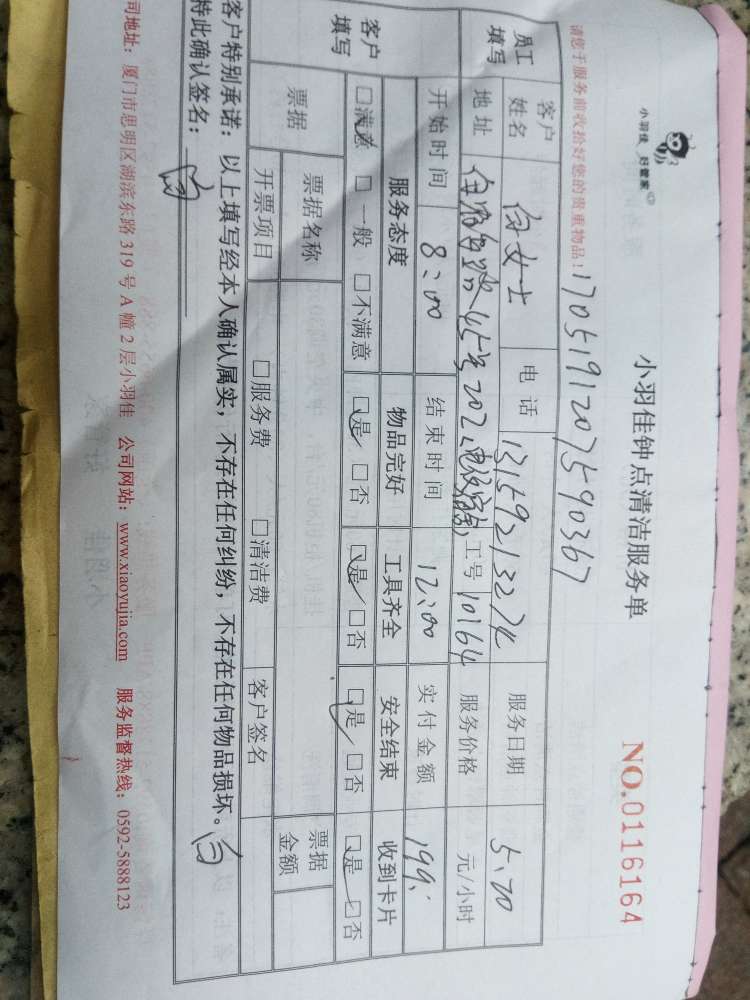 小羽佳 好管家
小羽佳钟点清洁服务单
NO.0116164
请您于服务前收拾好您的贵重物品！
1705191207590367
员工填写 客户姓名 白女士 电话 13159213274 服务日期 5.20
地址 45号202 工号 10164 服务价格 元/小时
开始时间 8:00 结束时间 12:00 实付金额 199.
客户填写 服务态度 物品完好 工具齐全 安全结束 收到卡片
□满意 □一般 □不满意 □是 □否 □是 □否 □是 □否 □是 □否
票据 票据名称 票据金额
开票项目 □服务费 □清洁费 客户签名
客户特别承诺：以上填写经本人确认属实，不存在任何纠纷，不存在任何物品损坏。白
特此确认签名：
司地址：厦门市思明区湖滨东路319号A幢2层小羽佳 公司网站：www.xiaoyujia.com 服务监督热线：0592-5888123